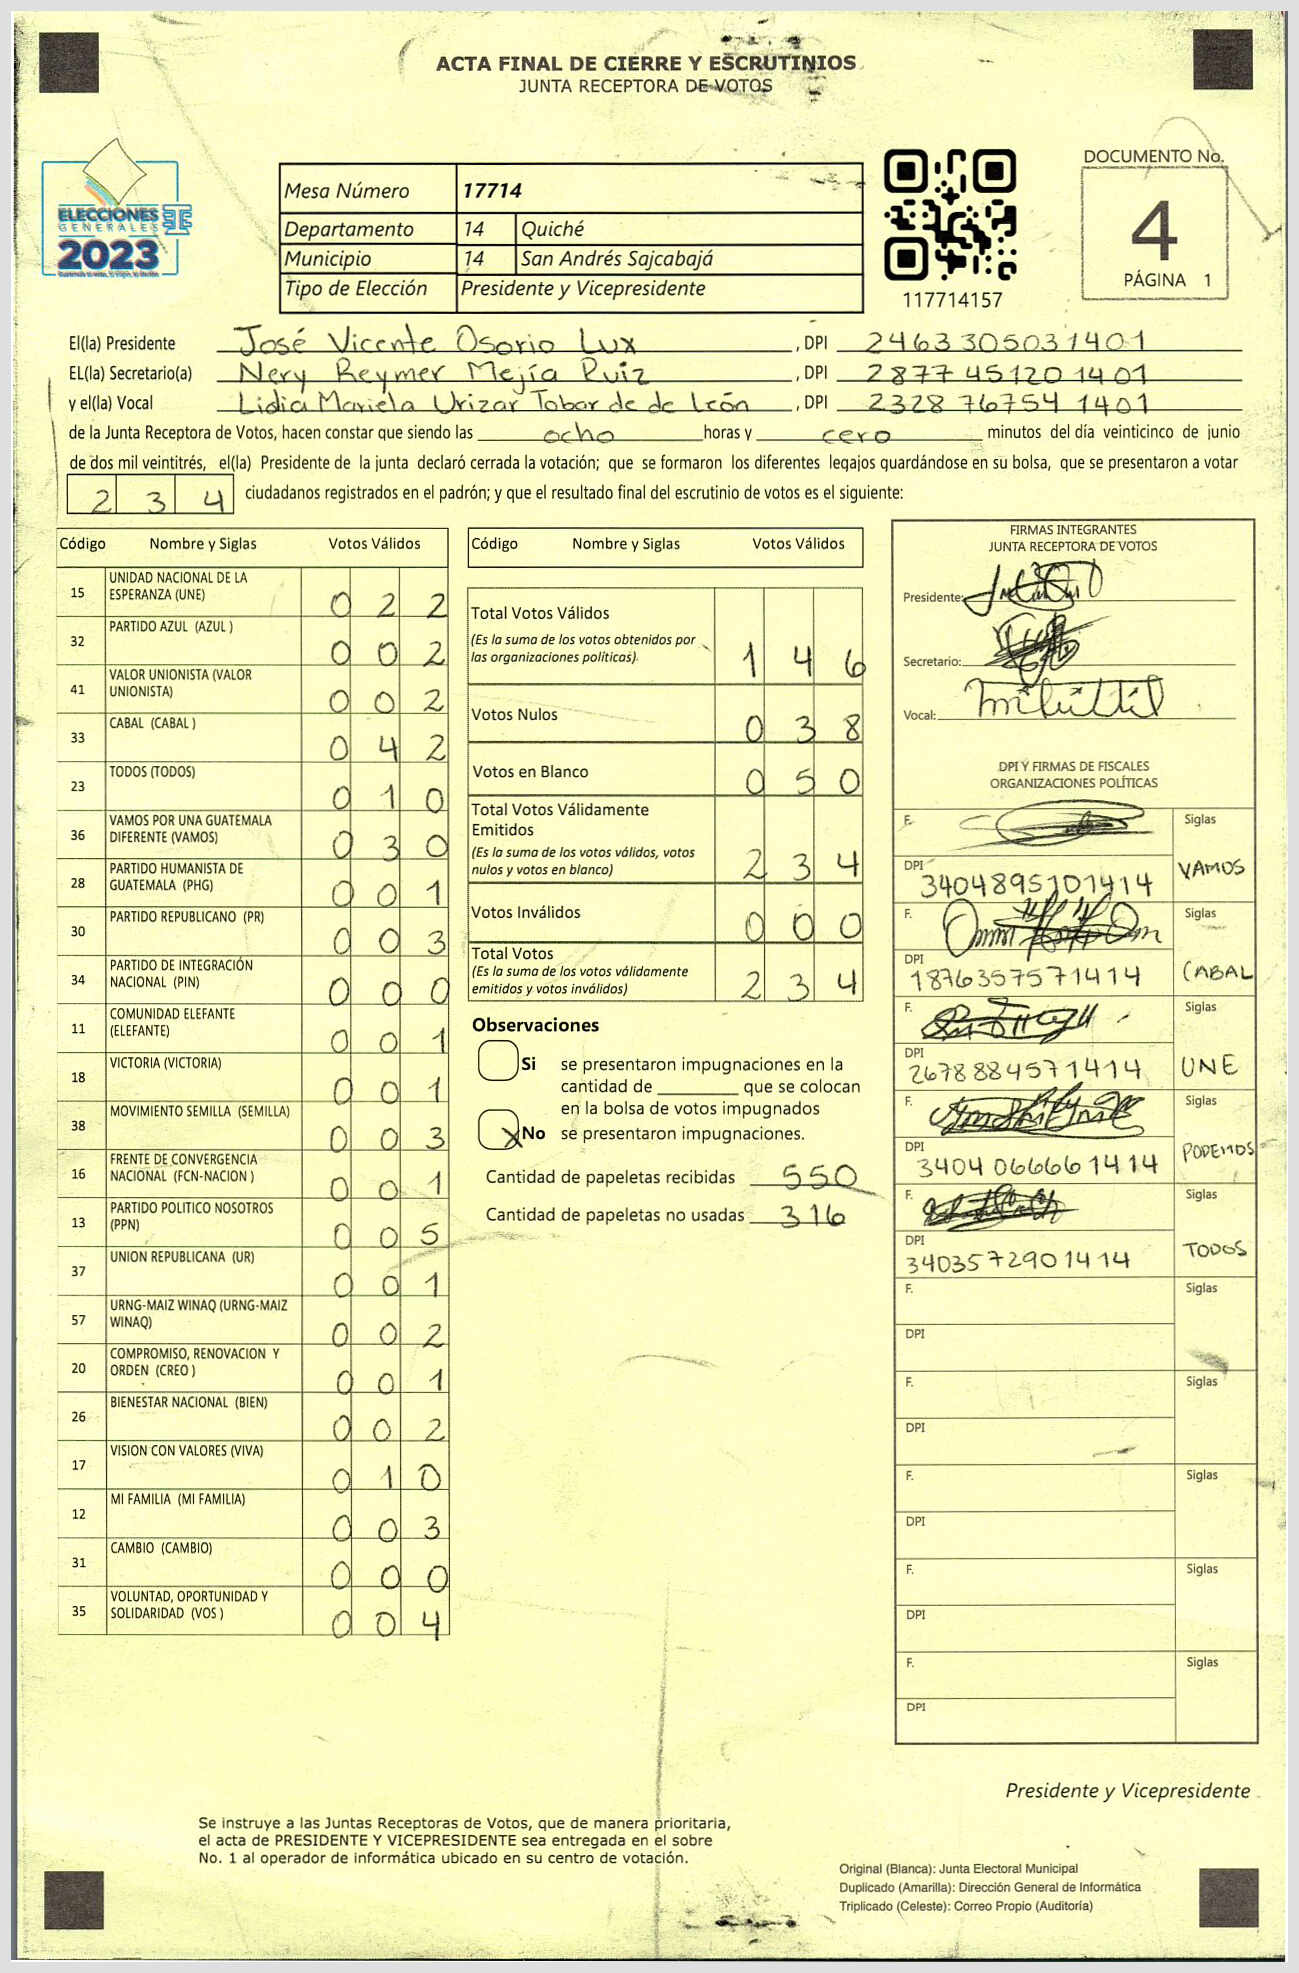 ACTA FINAL DE CIERRE Y ESCRUTINIOS
JUNTA RECEPTORA DE VOTOS
ELECCIONES
GENERALES
2023
Mesa Número 17714
Departamento 14 Quiché
Municipio 14 San Andrés Sajcabajá
Tipo de Elección Presidente y Vicepresidente
117714157
DOCUMENTO No.
4
PÁGINA 1
El(la) Presidente José Vicente Osorio Lux , DPI 2463305031401
EL(la) Secretario(a) Nery Reymer Mejía Ruiz , DPI 2877451201401
y el(la) Vocal Lidia Mariela Urizar Tobar de de León , DPI 2328767541401
de la Junta Receptora de Votos, hacen constar que siendo las ocho horas y cero minutos del día veinticinco de junio
de dos mil veintitrés, el(la) Presidente de la junta declaró cerrada la votación; que se formaron los diferentes legajos quardándose en su bolsa, que se presentaron a votar
2 3 4 ciudadanos registrados en el padrón; y que el resultado final del escrutinio de votos es el siguiente:
Código Nombre y Siglas Votos Válidos
15 UNIDAD NACIONAL DE LA ESPERANZA (UNE) 0 2 2
32 PARTIDO AZUL (AZUL ) 0 0 2
41 VALOR UNIONISTA (VALOR UNIONISTA) 0 0 2
33 CABAL (CABAL ) 0 4 2
23 TODOS (TODOS) 0 1 0
36 VAMOS POR UNA GUATEMALA DIFERENTE (VAMOS) 0 3 0
28 PARTIDO HUMANISTA DE GUATEMALA (PHG) 0 0 1
30 PARTIDO REPUBLICANO (PR) 0 0 3
34 PARTIDO DE INTEGRACIÓN NACIONAL (PIN) 0 0 0
11 COMUNIDAD ELEFANTE (ELEFANTE) 0 0 1
18 VICTORIA (VICTORIA) 0 0 1
38 MOVIMIENTO SEMILLA (SEMILLA) 0 0 3
16 FRENTE DE CONVERGENCIA NACIONAL (FCN-NACION ) 0 0 1
13 PARTIDO POLITICO NOSOTROS (PPN) 0 0 5
37 UNION REPUBLICANA (UR) 0 0 1
57 URNG-MAIZ WINAQ (URNG-MAIZ WINAQ) 0 0 2
20 COMPROMISO, RENOVACION Y ORDEN (CREO ) 0 0 1
26 BIENESTAR NACIONAL (BIEN) 0 0 2
17 VISION CON VALORES (VIVA) 0 1 0
12 MI FAMILIA (MI FAMILIA) 0 0 3
31 CAMBIO (CAMBIO) 0 0 0
35 VOLUNTAD, OPORTUNIDAD Y SOLIDARIDAD (VOS ) 0 0 4
Código Nombre y Siglas Votos Válidos
Total Votos Válidos 1 4 6
(Es la suma de los votos obtenidos por
las organizaciones políticas).
Votos Nulos 0 3 8
Votos en Blanco 0 5 0
Total Votos Válidamente
Emitidos 2 3 4
(Es la suma de los votos válidos, votos
nulos y votos en blanco)
Votos Inválidos 0 0 0
Total Votos 2 3 4
(Es la suma de los votos válidamente
emitidos y votos inválidos)
Observaciones
Si se presentaron impugnaciones en la
cantidad de ________ que se colocan
en la bolsa de votos impugnados
X No se presentaron impugnaciones.
Cantidad de papeletas recibidas 550
Cantidad de papeletas no usadas 316
FIRMAS INTEGRANTES
JUNTA RECEPTORA DE VOTOS
Presidente:
Secretario:
Vocal:
DPI Y FIRMAS DE FISCALES
ORGANIZACIONES POLÍTICAS
F. Siglas
DPI 3404895101414 VAMOS
F. Siglas
DPI 1876357571414 CABAL
F. Siglas
DPI 2678884571414 UNE
F. Siglas
DPI 3404066661414 PODEMOS
F. Siglas
DPI 3403572901414 TODOS
F. Siglas
DPI
F. Siglas
DPI
F. Siglas
DPI
F. Siglas
DPI
F. Siglas
DPI
Presidente y Vicepresidente
Se instruye a las Juntas Receptoras de Votos, que de manera prioritaria,
el acta de PRESIDENTE Y VICEPRESIDENTE sea entregada en el sobre
No. 1 al operador de informática ubicado en su centro de votación.
Original (Blanca): Junta Electoral Municipal
Duplicado (Amarilla): Dirección General de Informática
Triplicado (Celeste): Correo Propio (Auditoría)